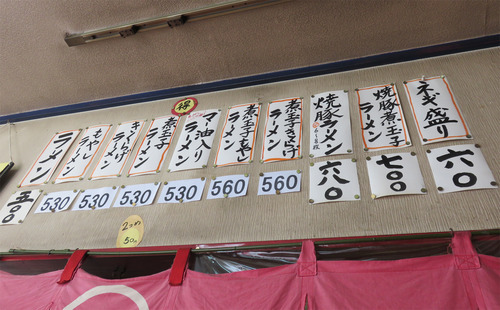 得
ラーメン
もやしラーメン
きくらげラーメン
煮玉子ラーメン
マー油入りラーメン
煮玉子もやしラーメン
煮玉きくらげラーメン
焼豚ラーメン
焼豚煮玉子ラーメン
ネギ盛り
五〇〇
530
530
530
530
560
560
六八〇
七〇〇
六〇
50円